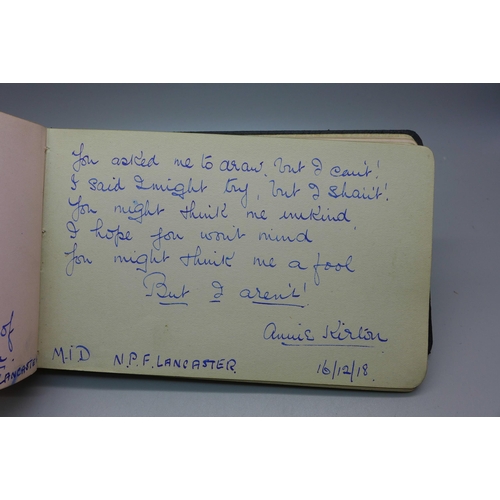 You asked me to draw, but I can't!
I said I might try, but I shan't!
You might think me unkind,
I hope you won't mind
You might think me a fool
But I aren't!
Annie Kirton
M.I.D N.P.F. LANCASTER 16/12/18.
of
LANCASTER